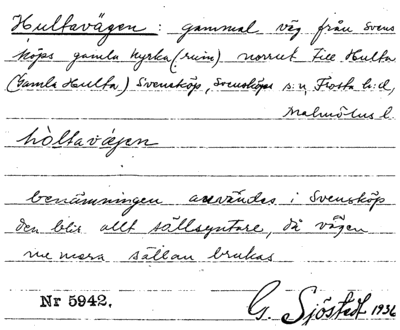 Hultavägen: gammal väg från Svens
köps gamla kyrka (ruin) norrut till Hulta
(Gamla Hulta) Svensköp, Svensköps sn, Frosta hd,
Malmöhus l.
hòltavägen
benämningen användes i Svensköp
den blir allt sällsyntare, då vägen
nu mera sällan brukas
Nr 5942. G. Sjöstedt 1936